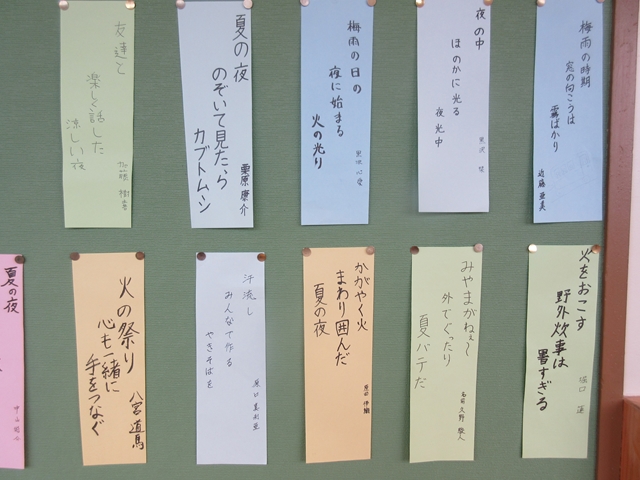 梅雨の時期
窓の向こうは
霧ばかり
近藤 亜美
夜の中
ほのかに光る
夜光中
黒沢
梅雨の日の
夜に始まる
火の光り
夏の夜
のぞいて見たら
カブトムシ
栗原 康介
友達と
楽しく話した
涼しい夜
加藤 樹
火をおこす
野外炊事は
暑すぎる
堀口 蓮
みやまがねぇ〜
外でぐったり
夏バテだ
名前 文野 俊人
かがやく火
まわり囲んだ
夏の夜
汗流し
みんなで作る
やきそばを
火の祭り
心も一緒に
手をつなぐ
八宮 道馬
夏の夜